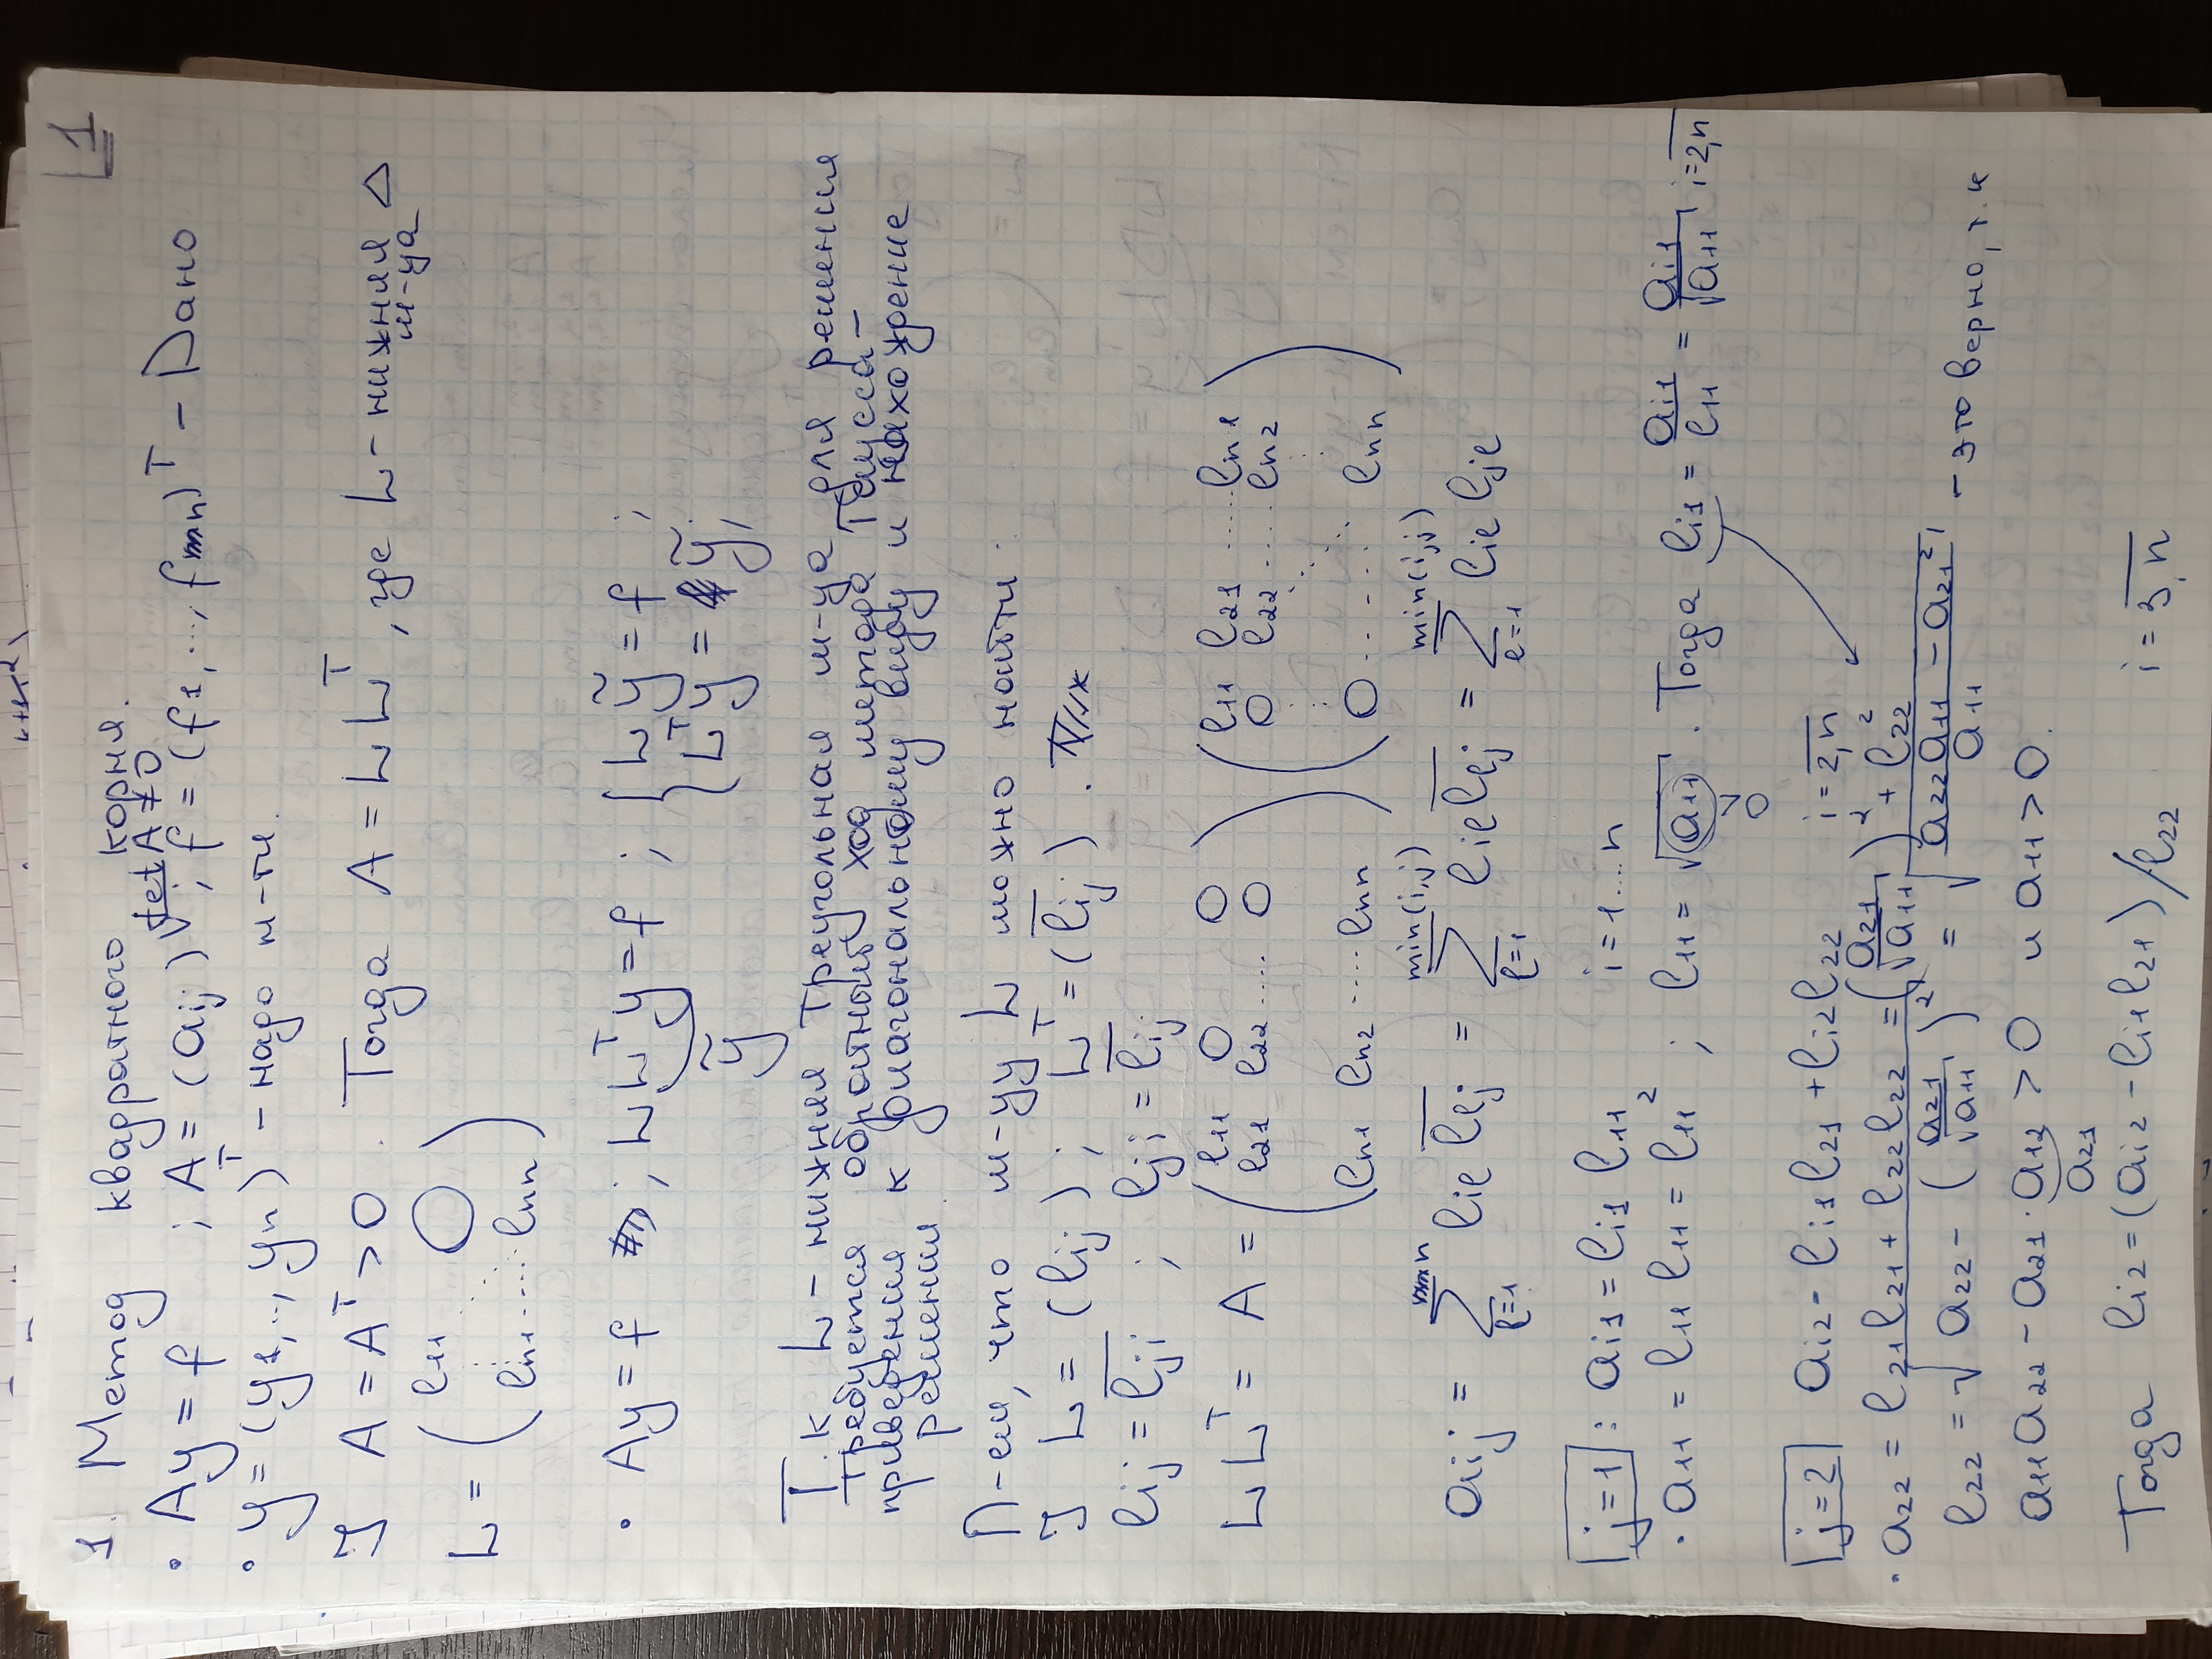 1
1. Метод квадратного корня.
• Ay = f ; A = (aij) ; det A ≠ 0 ; f = (f1, ..., fn)ᵀ – Дано
• y = (y1, ..., yn)ᵀ – надо н-ти.
∃ A = Aᵀ > 0 . Тогда A = LLᵀ, где L – нижняя △ м-ца
L = (l11 0
ln1 ..... lnn)
• Ay = f ; LLᵀy = f ; { Lỹ = f ;
ỹ { Lᵀy = ỹ ;
Т.к L – нижняя треугольная м-ца для решения
требуется обратный ход метода Гаусса –
приведения к диагональному виду и нахождение
решения.
П-ем, что м-цу L можно найти.
∃ L = (lij) ; Lᵀ = (l̅ij) .
lij = l̅ji ; lji = l̅ij
LLᵀ = A = (l11 0 ..... 0) (l11 l21 ..... ln1)
(l21 l22 ..... 0) (0 l22 ..... ln2)
(ln1 ln2 ..... lnn) (0 ..... lnn)
aij = Σ_{l=1}^{n} lil l̅lj = Σ_{l=1}^{min(i,j)} lil l̅lj = Σ_{l=1}^{min(i,j)} lil ljl
j = 1 : ai1 = li1 l11 i = 1...n
• a11 = l11 l11 = l11² ; l11 = √a11 . Тогда li1 = ai1/l11 = ai1/√a11 i = 2,n
>0
j = 2 ai2 = li1 l21 + li2 l22 i = 2,n
• a22 = l21 l21 + l22 l22 = (a21/√a11)² + l22²
l22 = √(a22 – (a21/√a11)²) = √((a22 a11 – a21²)/a11) – это верно, т.к
a11 a22 – a21 · a12 > 0 и a11 > 0.
a21
Тогда li2 = (ai2 – li1 l21)/l22 i = 3,n